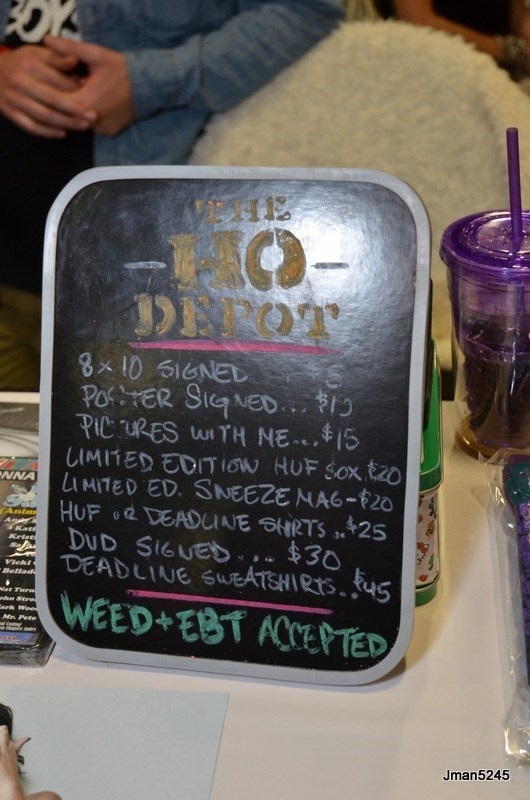 BOYS
THE
HO
DEPOT
8x10 SIGNED
POSTER SIGNED... $10
PICTURES WITH ME... $15
LIMITED EDITION HUF SOX, $20
LIMITED ED. SNEEZE MAG-$20
HUF or DEADLINE SHIRTS..$25
DVD SIGNED... $30
DEADLINE SWEATSHIRTS..$45
WEED+EBT ACCEPTED
NNA
Andy
Kati
Krist
Vicki
Bellado
Nat Turne
John Stro
Mark Woo
Mr. Pete
Jman5245